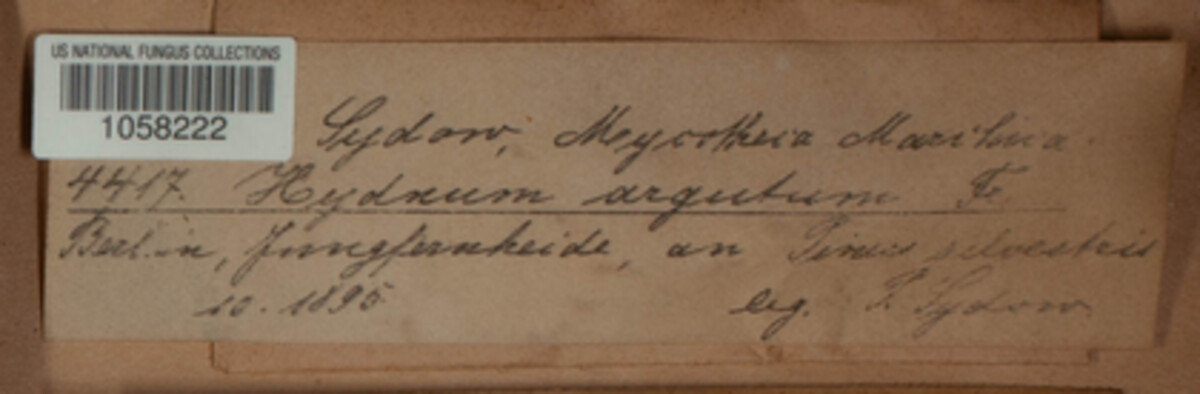 US NATIONAL FUNGUS COLLECTIONS
1058222
Sydow, Mycotheca Marchica.
4417. Hydnum argutum Fr.
Berlin, Jungfernheide, an Pinus silvestris
10. 1895 leg. P. Sydow.